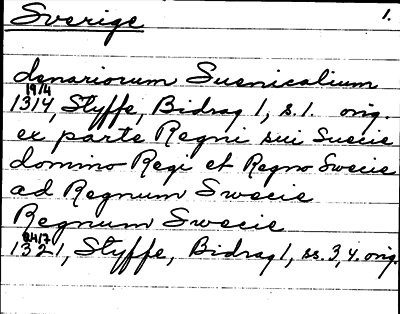 Sverige 1.
denariorum Suenicalium
19/4
1314, Styffe, Bidrag 1, s. 1. orig.
ex parte Regni sui Suecie
domino Regi et Regno Swecie
ad Regnum Swecie
Regnum Swecie
24/7
1321, Styffe, Bidrag 1, ss. 3, 4. orig.